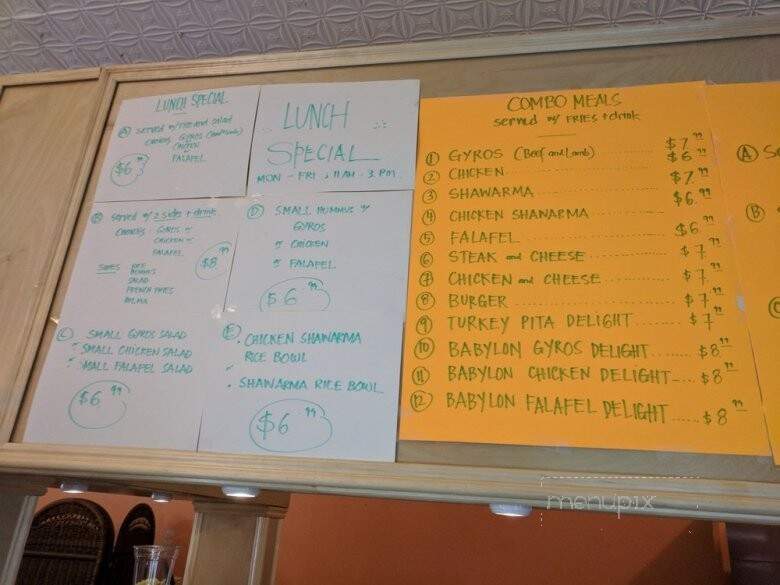 LUNCH SPECIAL
Ⓐ served w/ rice and salad
CHOICES GYROS (Beef+Lamb)
CHICKEN
FALAFEL
$6.99
LUNCH
SPECIAL
MON - FRI 11 AM - 3 PM
Ⓑ served w/ 2 sides + drink
CHOICES GYROS or
CHICKEN or
FALAFEL
$8.99
SIDES RICE
HUMMUS
SALAD
FRENCH FRIES
DOLMA
Ⓓ SMALL HUMMUS w/
GYROS
or CHICKEN
or FALAFEL
$6.99
Ⓒ SMALL GYROS SALAD
" SMALL CHICKEN SALAD
" SMALL FALAFEL SALAD
$6.99
Ⓔ . CHICKEN SHAWARMA
RICE BOWL
. SHAWARMA RICE BOWL
$6.99
COMBO MEALS
served w/ FRIES + drink
① GYROS (Beef and Lamb) $7.99
② CHICKEN $6.99
③ SHAWARMA $7.99
④ CHICKEN SHAWARMA $6.99
⑤ FALAFEL $6.99
⑥ STEAK and CHEESE $7.99
⑦ CHICKEN and CHEESE $7.99
⑧ BURGER $7.99
⑨ TURKEY PITA DELIGHT $7.99
⑩ BABYLON GYROS DELIGHT $8.99
⑪ BABYLON CHICKEN DELIGHT $8.99
⑫ BABYLON FALAFEL DELIGHT $8.99
Ⓐ
Ⓑ
menupix